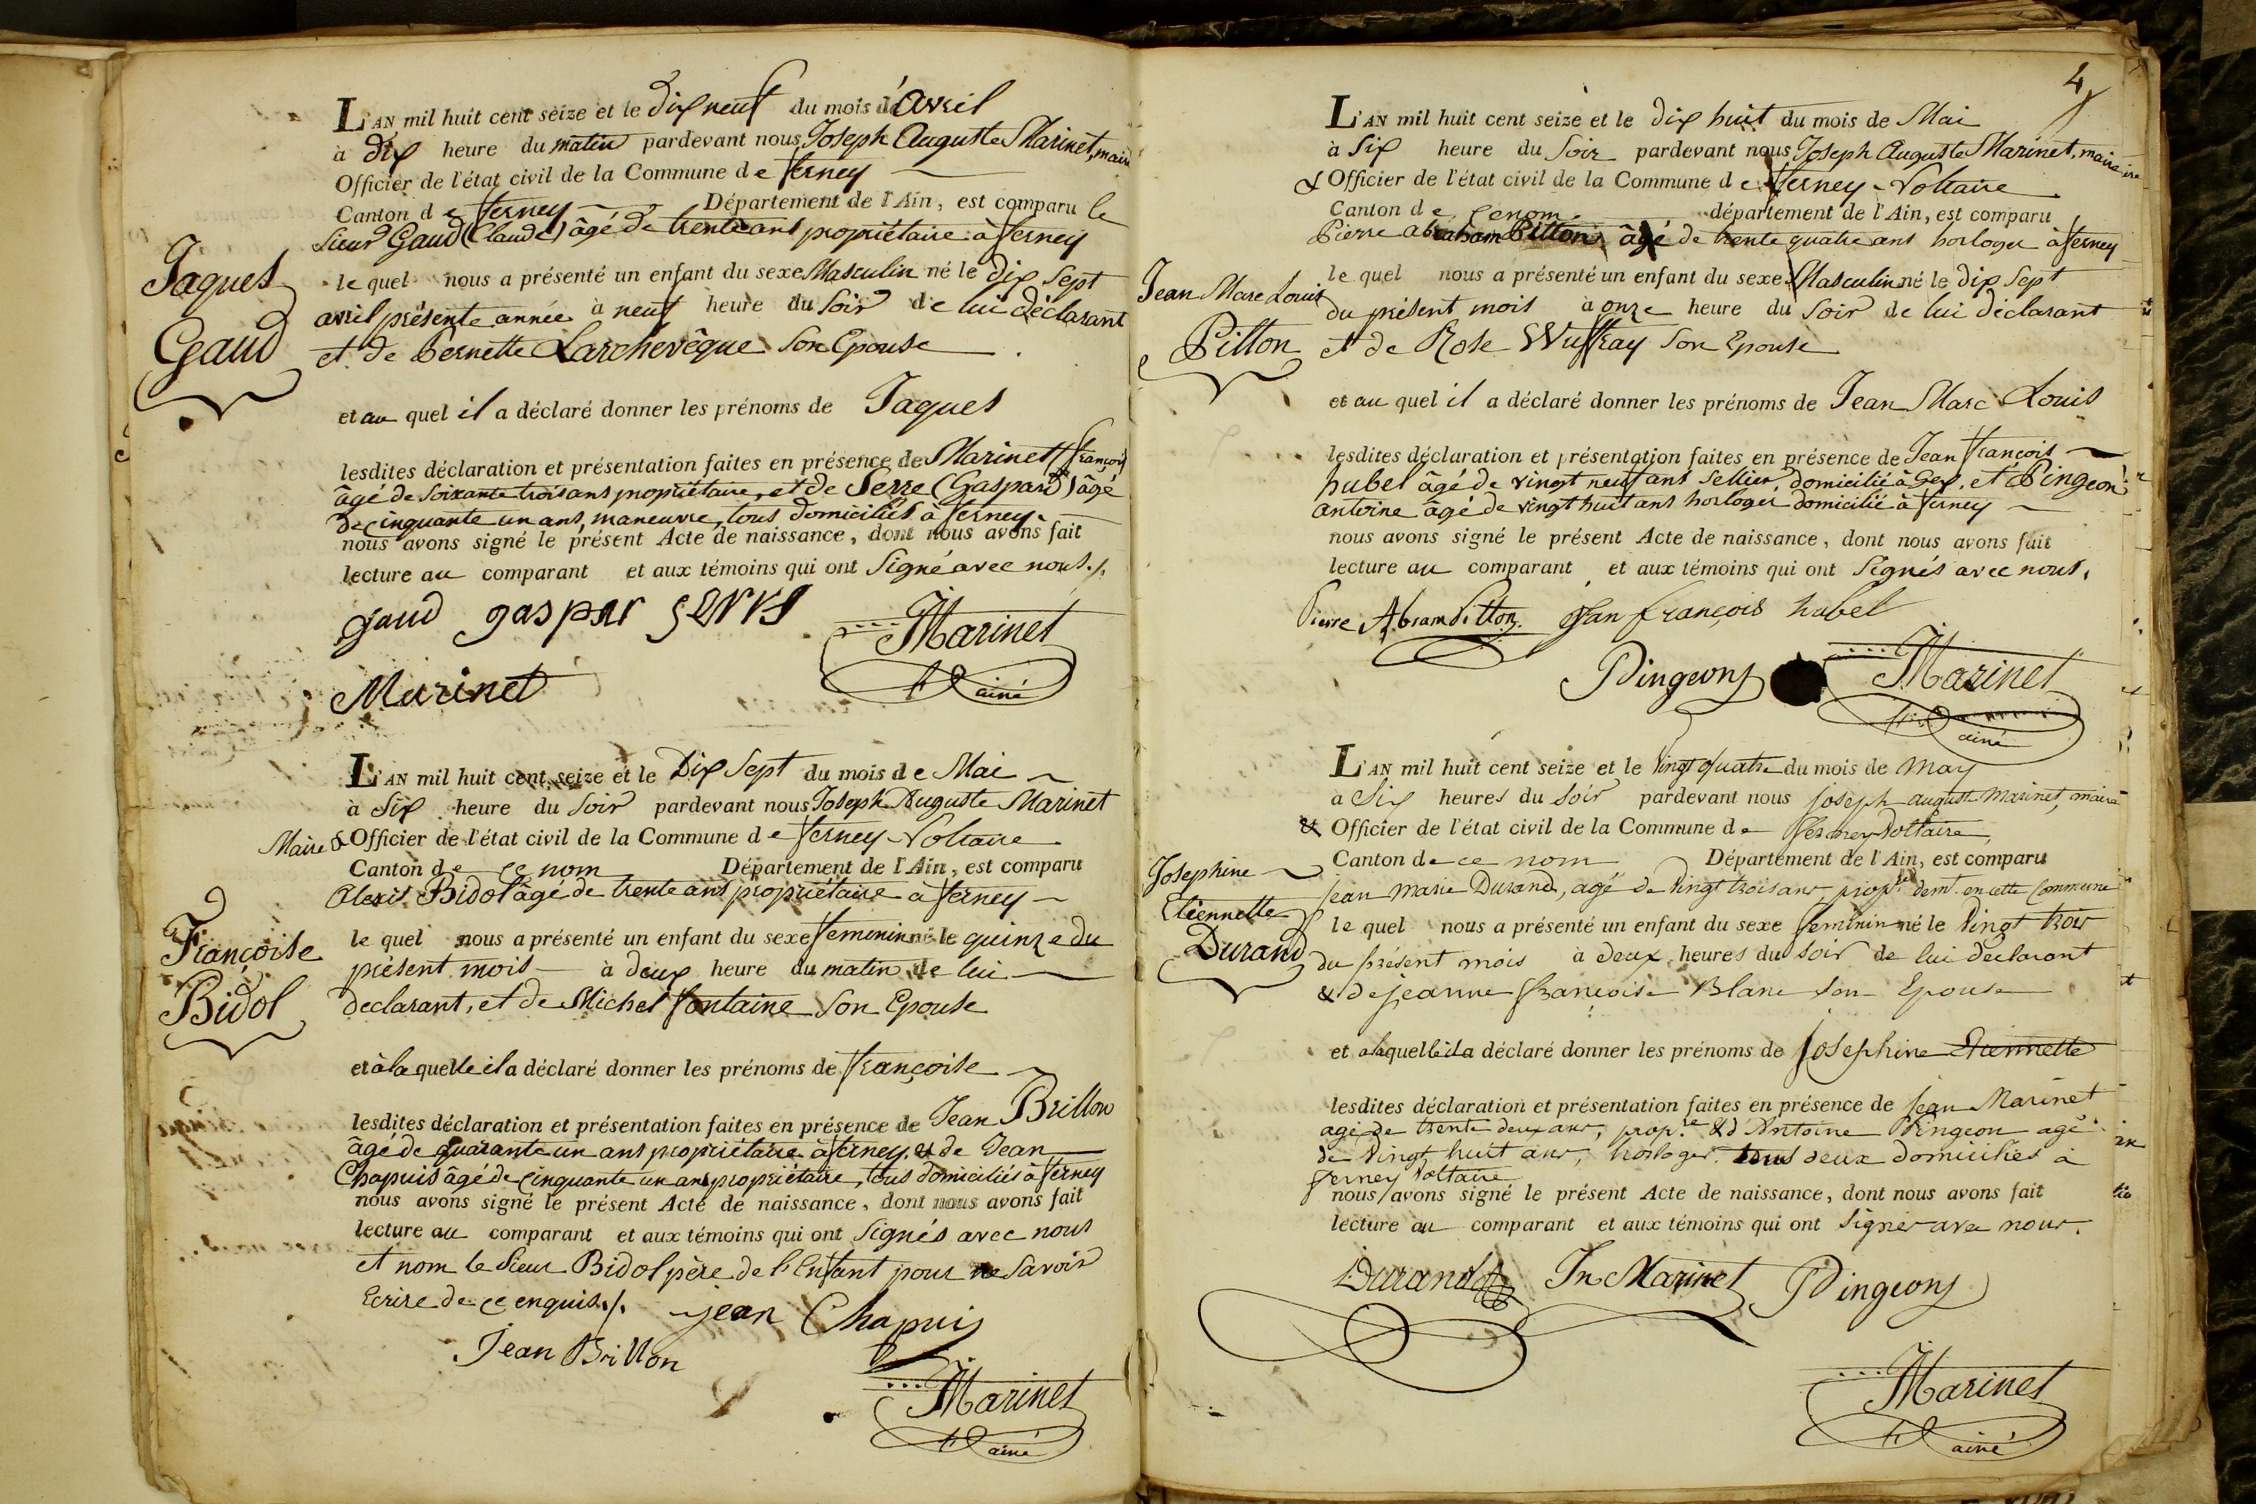 L'AN mil huit cent seize et le dix neuf du mois d'avril
à dix heure du matin pardevant nous Joseph Auguste Marinet, maire
Officier de l'état civil de la Commune de ferney
Canton de ferney Département de l'Ain, est comparu le
Sieur Gaud (Claude) âgé de trente ans propriétaire à ferney
Jaques
Gaud
le quel nous a présenté un enfant du sexe Masculin né le dix Sept
avril présente année à neuf heure du Soir de lui déclarant
et de Pernette Larchevêque Son Epouse
et au quel il a déclaré donner les prénoms de Jaques
lesdites déclaration et présentation faites en présence de Marinet françois
âgé de Soixante trois ans propriétaire, et de Serre (Gaspard) âgé
de cinquante un ans, maneuvre, tous domiciliés à ferney.
nous avons signé le présent Acte de naissance, dont nous avons fait
lecture au comparant et aux témoins qui ont Signé avec nous ./.
gaud gaspar serrs Marinet
ainé
Marinet
L'AN mil huit cent seize et le Dix Sept du mois de Mai
à Six heure du Soir pardevant nous Joseph Auguste Marinet
Maire & Officier de l'état civil de la Commune de ferney-Voltaire
Canton de ce nom Département de l'Ain, est comparu
Alexis Bidol âgé de trente ans propriétaire à ferney
Françoise
Bidol
le quel nous a présenté un enfant du sexe feminin né le quinze du
présent mois à deux heure du matin de lui
declarant, et de Michel fontaine Son Epouse
et à la quelle il a déclaré donner les prénoms de françoise
lesdites déclaration et présentation faites en présence de Jean Brillon
âgé de quarante un ans propriétaire à ferney, & de Jean
Chapuis âgé de cinquante un ans propriétaire, tous domiciliés à ferney
nous avons signé le présent Acte de naissance, dont nous avons fait
lecture au comparant et aux témoins qui ont Signés avec nous
et nom le Sieur Bidol père de l'Enfant pour ne Savoir
Ecrire de ce enquis ./. jean Chapuis
Jean Brillon
Marinet
ainé
4
L'AN mil huit cent seize et le dix huit du mois de Mai
à Six heure du Soir pardevant nous Joseph Auguste Marinet, maire
& Officier de l'état civil de la Commune de ferney-Voltaire
Canton de ce nom département de l'Ain, est comparu
Pierre abraham Pitton, âgé de trente quatre ans horloger à ferney
Jean Marc Louis
Pitton
le quel nous a présenté un enfant du sexe Masculin né le dix Sept
du présent mois à onze heure du Soir de lui déclarant
et de Rose Wuffray Son Epouse
et au quel il a déclaré donner les prénoms de Jean Marc Louis
lesdites déclaration et présentation faites en présence de Jean françois
hubel âgé de vingt neuf ans Sellier, domicilié à Gex, et Pingeon
antoine âgé de vingt huit ans horloger domicilié à ferney
nous avons signé le présent Acte de naissance, dont nous avons fait
lecture au comparant et aux témoins qui ont Signés avec nous.
Pierre Abram Pitton Jan françois hubel
Pingeon Marinet
ainé
L'AN mil huit cent seize et le vingt quatre du mois de may
à Six heures du soir pardevant nous joseph auguste Marinet, maire
& Officier de l'état civil de la Commune de ferney Voltaire
Canton de ce nom Département de l'Ain, est comparu
jean marie Durand, agé de vingt trois ans prop.re demt. en cette Commune
Josephine
Etiennette
Durand
le quel nous a présenté un enfant du sexe feminin né le vingt trois
du présent mois à deux heures du soir de lui declarant
& de jeanne françoise Blanc son Epouse
et à laquelle il a déclaré donner les prénoms de josephine Etiennette
lesdites déclaration et présentation faites en présence de jean Marinet
agé de trente deux ans, prop.re & d'Antoine Pingeon agé
de vingt huit ans, horloger tous deux domiciliés à
ferney Voltaire
nous avons signé le présent Acte de naissance, dont nous avons fait
lecture au comparant et aux témoins qui ont signés avec nous.
Durand Jn Marinet Pingeon
Marinet
ainé